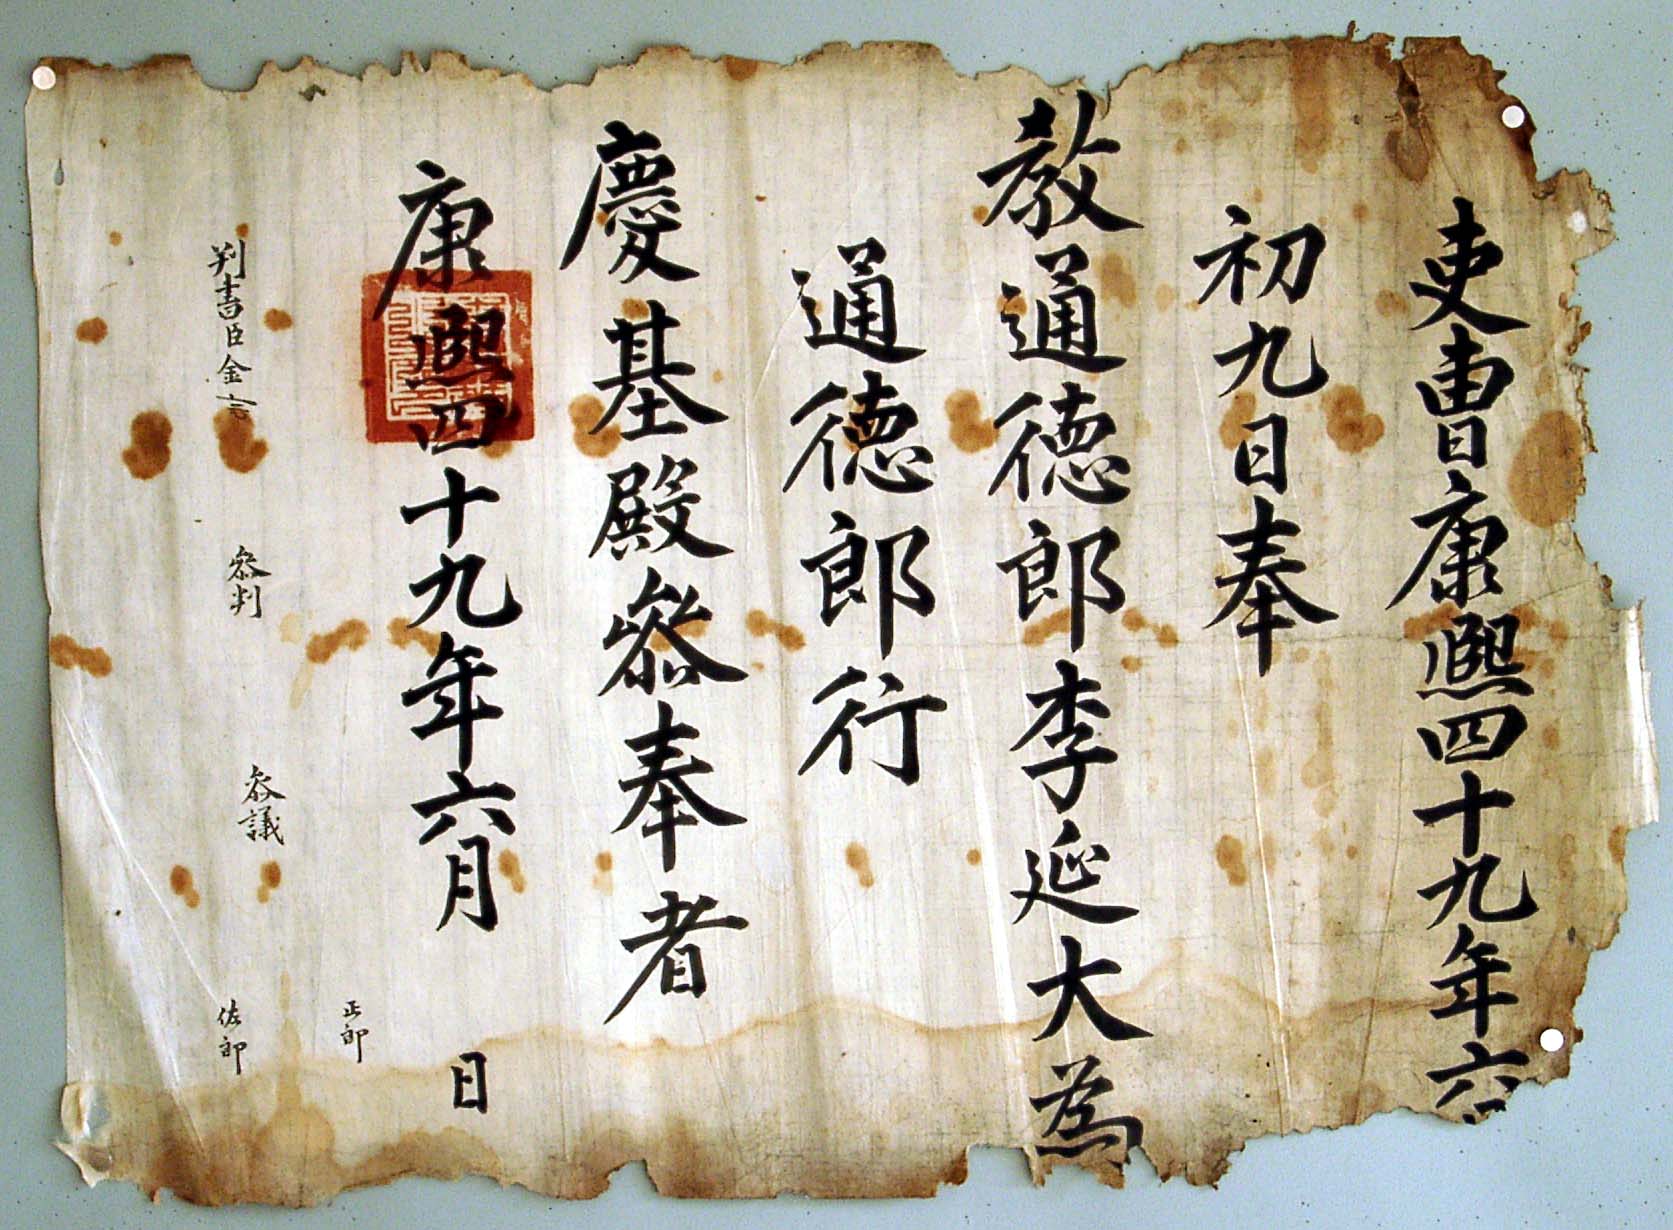 吏曹康熙四十九年六
初九日奉
教通德郎李延大為
通德郎行
慶基殿叅奉者
康熙四十九年六月 日
正郎
判書臣金 叅判 叅議 佐郎